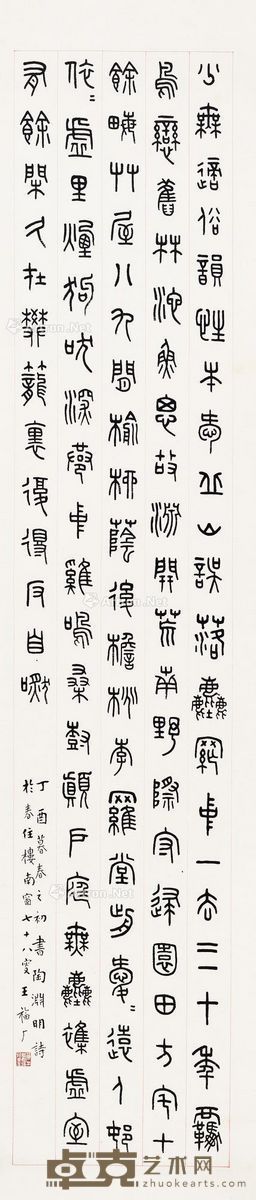 少無適俗韻性本愛丘山誤落塵网中一去三十年羈
鳥戀舊林池魚思故淵開荒南野際守歸園田方宅十
餘畮艸屋八九閒榆柳蔭後檐桃李羅堂前曖〻遠人邨
依〻虛里煙狗吠深巷中雞鳴桑樹顛戶庭無塵雜虛室
有餘閒久在樊籠裏復得反自然
丁酉暮春之初書陶淵明詩
於春住樓南窗七十八叟王福厂
卓克艺术网
www.zhuokearts.com